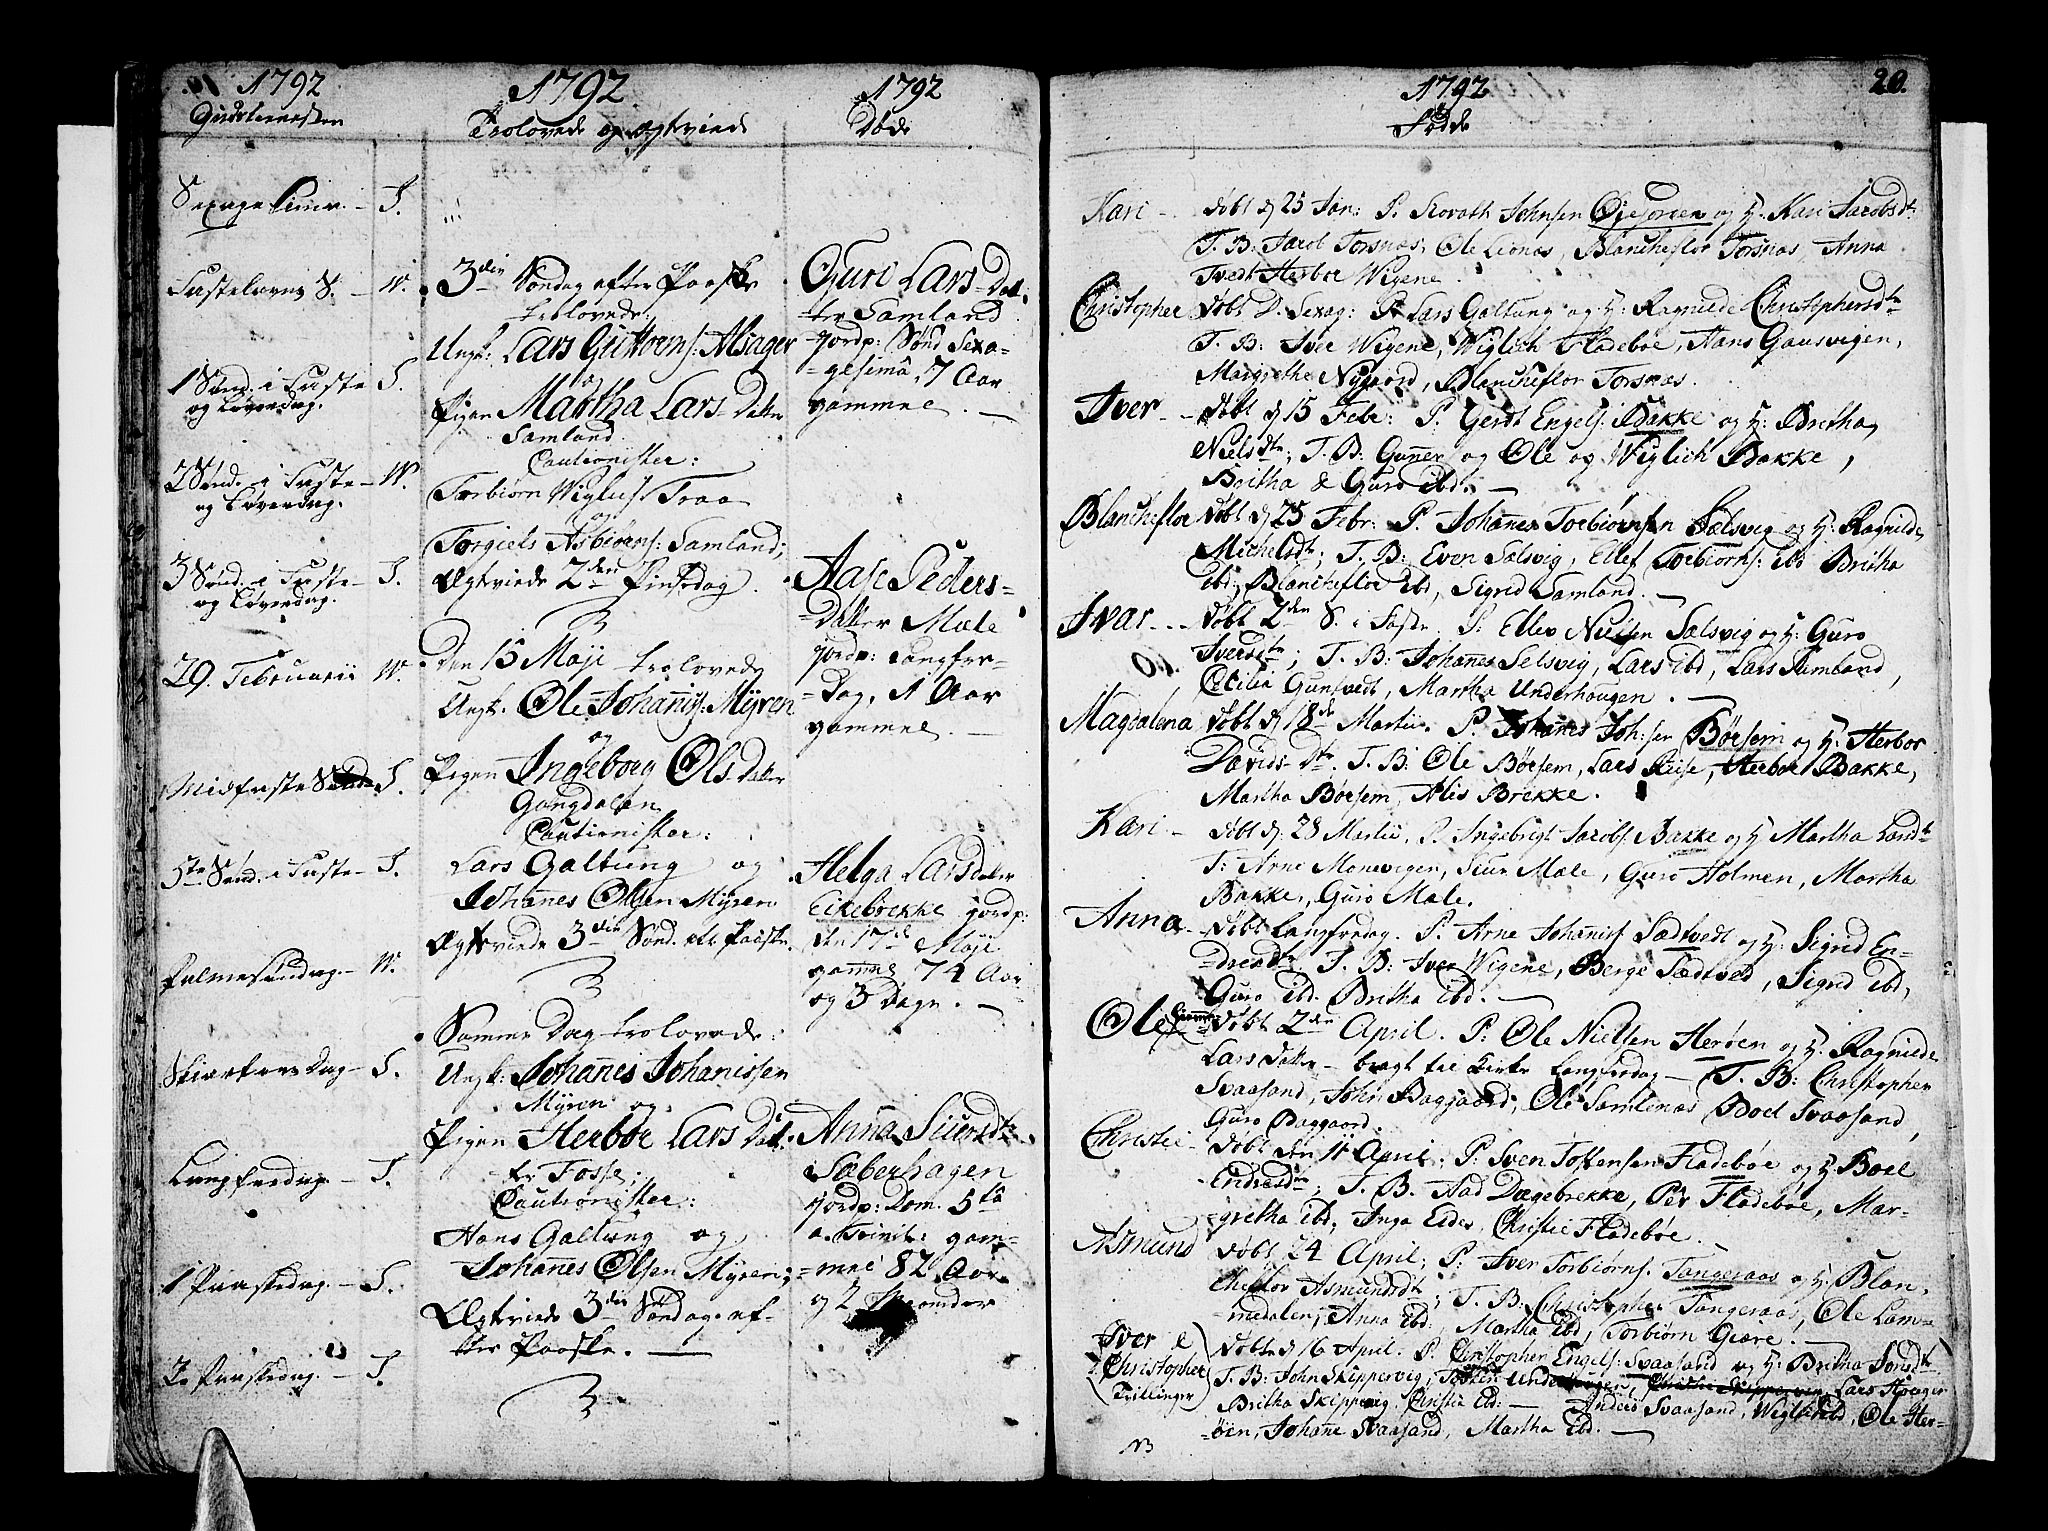 1792
Gudstienesten
Sexagesima. - S.
Fastelavns S. - W.
1 Sønd. i Faste S.
og Løverdag.
2 Sønd. i Faste - W.
og Løverdag.
3 Sønd. i Faste - S.
og Løverdag.
29. Februarii W.
Midfaste S.
5te Sønd. i Faste - S.
Palmesøndag. - W.
Skiærtorsdag - S.
Langfredag. - S.
1 Paaskedag. - S.
2. Paaskedag. - S.
1792
Trolovede og Ægtviede
3die Søndag efter Paaske
trolovede:
Ungk: Lars Guttorms: Alsager
og
Pigen Martha Lars Datter
Samland
Cautionister:
Torbiørn Wiglies Traa
og
Torgiels Asbiørns: Samland;
Ægtviede 2den Pintsdag.
Den 15 Maji trolovede
Ungk. Ole Johanis: Myren
og
Pigen Ingeborg Ols Datter
Gangdalen
Cautionister:
Lars Galtung og
Johannes Olsen Myren
Ægtviede 3die Sønd. Paaske.
Samme Dag trolovede:
Ungk: Johanes Johanissen
Myren og
Pigen Herbor Lars Dat-
ter Fosse;
Cautionister:
Hans Galtung og
Johanes Olsen Myren;
Ægtviede 3die Søndag ef-
ter Paaske.
1792
Døde
Guri Lars-Dat-
ter Samland
jordp: Sønd Sexa-
=gesima, 7 Aar
gammel.
Aase Peders-
=Datter Mæle
jordp: Langfre-
=dag, 1 Aar
gammel.
Helga Larsdatter
Eikebrekke jordp:
den 17de Maji
gamel 74 Aar
og 3 Dage.
Anna Siursdtr
Sæberhagen
jordp: Dom. 5ta
a. Trinit: gam-
=mel 82 Aar
og 2 Maaneder
1792
20.
Fødde
Kari - døbt d 25 Jan: P. Johnsen Øiesorden og H. Kari Jacobsdtr
T. B: Jacob Torsnæs, Ole Lionæs, Blancheflor Torsnæs, Anna
Tvedt Herbor Wigene.
Christopher døbt D. Sexag: P Lars Galtung og H: Ragnilde Christophersdtr
T. B: Iver Wigene, Wiglich Fladebøe, Hans Gausvigen,
Margrethe Nygaard, Blancheflor Torsnæs.
Iver - døbt d 15 Febr: P: Gerdt Engels: Bakke og H: Britha
Nielsdtr; T. B: Guner og Ole og Wiglich Bakke,
Britha & Guro ibd.
Blancheflor døbt d 25 Febr: P. Johanes Torbiørnsen Sælsvig og H: Ragnilde
Michelsdtr; T. B: Even Selsvig, Ellef Torbiørns: ibd Britha
ibd; Blancheflor ibd, Sigrid Samland.
Ivar - døbt 2den S. i Faste P: Ellev Nielsen Sælsvig og H: Guro
Iversdtr; T. B: Johanes Selsvig, Lars ibd, Lars Samland,
Cecilia Guntvedt, Martha Underhougen.
Magdalena døbt d 18de Martii. P. Johanes Joh:sen Børsem og H: Herbor
Davids-Dtr. T. B: Ole Børsem, Lars Reise, Herbor Bakke,
Martha Børsem, Alis Brekke.
Kari - døbt d. 28 Martii, P. Ingebrigt Jacobs: Bakke og H Martha
T: Arne Monevigen, Siur Mæle, Guro Holmen, Martha
Bakke, Guro Mæle.
Anna - døbt Langfredag. P. Arne Johanis: Sædtvedt og H: Sigrid En-
=dresdtr. T. B: Iver Wigene, Berge Sædtved, Sigrid ibd,
Guro ibd. Britha ibd.
Ole døbt 2den April. P: Ole Nielsen Herøen og H: Ragnilde
Lars Datter - bragt til Kirke Langfredag - T. B: Christopher
Svaasand, John Baggaard, Ole Samlenæs Boel Svaasand,
Guro Baggaard.
Christie - døbt den 11 April; P: Sven Tostensen Fladebøe og H: Boel
Endresdtr; T. B. Aad Dagebrekke, Per Fladebøe, Mar-
gretha ibd, Inga Eides, Christie Fladebøe.
Asmund døbt 24 April; P: Iver Torbiørns: Tangeraas og H: Blan-
cheflor Asmundsdtr; T. B: Christopher Tangeraas, Ole Lam-
=medalen, Anna ibd:, Martha ibd, Torbiørn Giære.
Iver & døbt d 16 April. P. Christopher Engels: Svaasand og H: Britha
Christopher T. B: John Skippervig, Lars Houger
Tvillinger Britha Skippervig, Christie ibd: - Anders Svaasand, Ole Her-
=øen, Johane Svaasand, Martha ibd.
NB